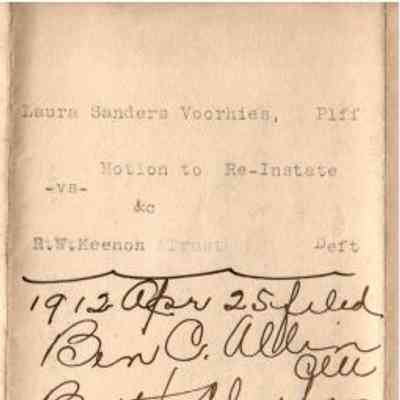 Laura Sanders Voorhies, Plff
Motion to Re-Instate
-vs-
&c
R.W.Keenon Deft
1912 Apr 25 filed
Ben C. Allin